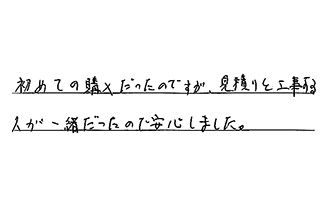 初めての購入だったのですが、見積りと工事する
人が一緒だったので安心しました。